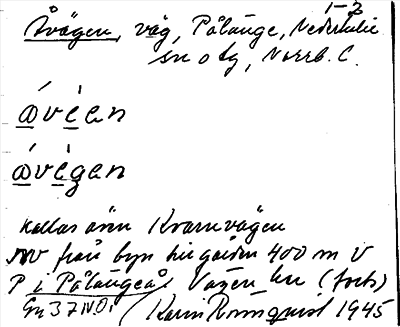 1-2
Åvägen, väg, Pålänge, Nederkalix
sn o tg, Norrb. C.
ávèen
ávègan
kallas även Kvarnvägen
NV från byn till gården 400 m V
P i Pålängeå. Vägen har (forts)
(Karin Rönnquist 1945